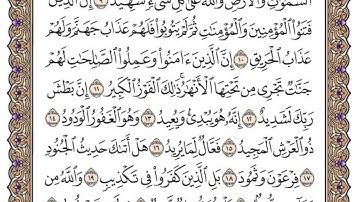 السَّمَٰوَٰتِ وَالْأَرْضِ وَاللَّهُ عَلَىٰ كُلِّ شَيْءٍ شَهِيدٌ ٩ إِنَّ الَّذِينَ
فَتَنُوا الْمُؤْمِنِينَ وَالْمُؤْمِنَاتِ ثُمَّ لَمْ يَتُوبُوا فَلَهُمْ عَذَابُ جَهَنَّمَ وَلَهُمْ
عَذَابُ الْحَرِيقِ ١٠ إِنَّ الَّذِينَ ءَامَنُوا وَعَمِلُوا الصَّالِحَاتِ لَهُمْ
جَنَّاتٌ تَجْرِي مِن تَحْتِهَا الْأَنْهَارُ ذَٰلِكَ الْفَوْزُ الْكَبِيرُ ١١ إِنَّ بَطْشَ
رَبِّكَ لَشَدِيدٌ ١٢ إِنَّهُ هُوَ يُبْدِئُ وَيُعِيدُ ١٣ وَهُوَ الْغَفُورُ الْوَدُودُ ١٤
ذُو الْعَرْشِ الْمَجِيدُ ١٥ فَعَّالٌ لِّمَا يُرِيدُ ١٦ هَلْ أَتَىٰكَ حَدِيثُ الْجُنُودِ
١٧ فِرْعَوْنَ وَثَمُودَ ١٨ بَلِ الَّذِينَ كَفَرُوا فِي تَكْذِيبٍ ١٩ وَاللَّهُ مِن